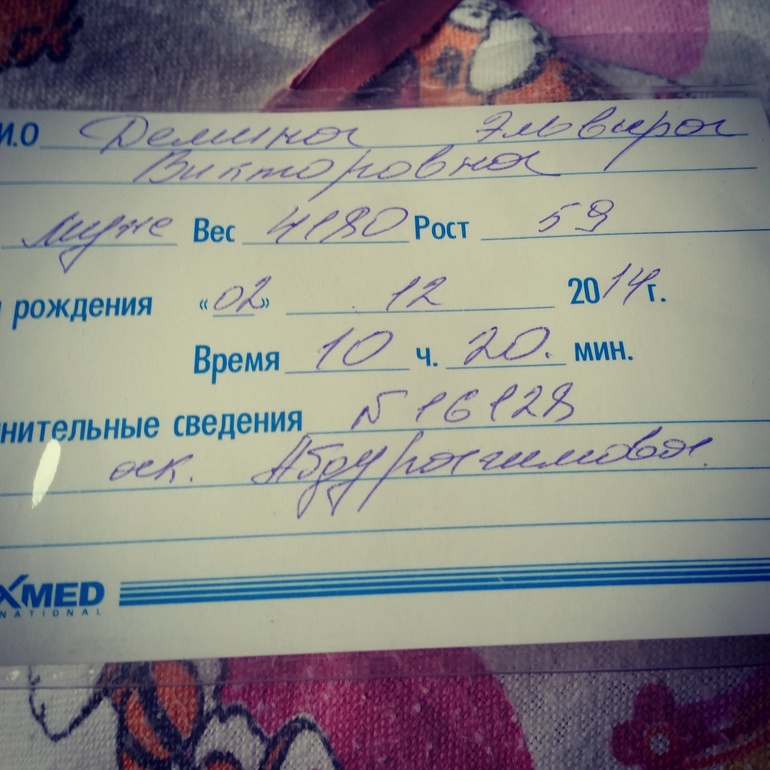 И.О Демина Эльвира
Викторовна
муж Вес 4180 Рост 59
рождения «02» 12 2014г.
Время 10 ч. 20. мин.
нительные сведения № 16128
ак. Абдурагимова.
XMED
NATIONAL